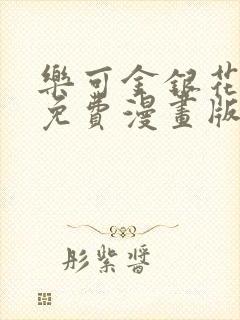 樂可金銀花
免費漫畫版
彤紫醬